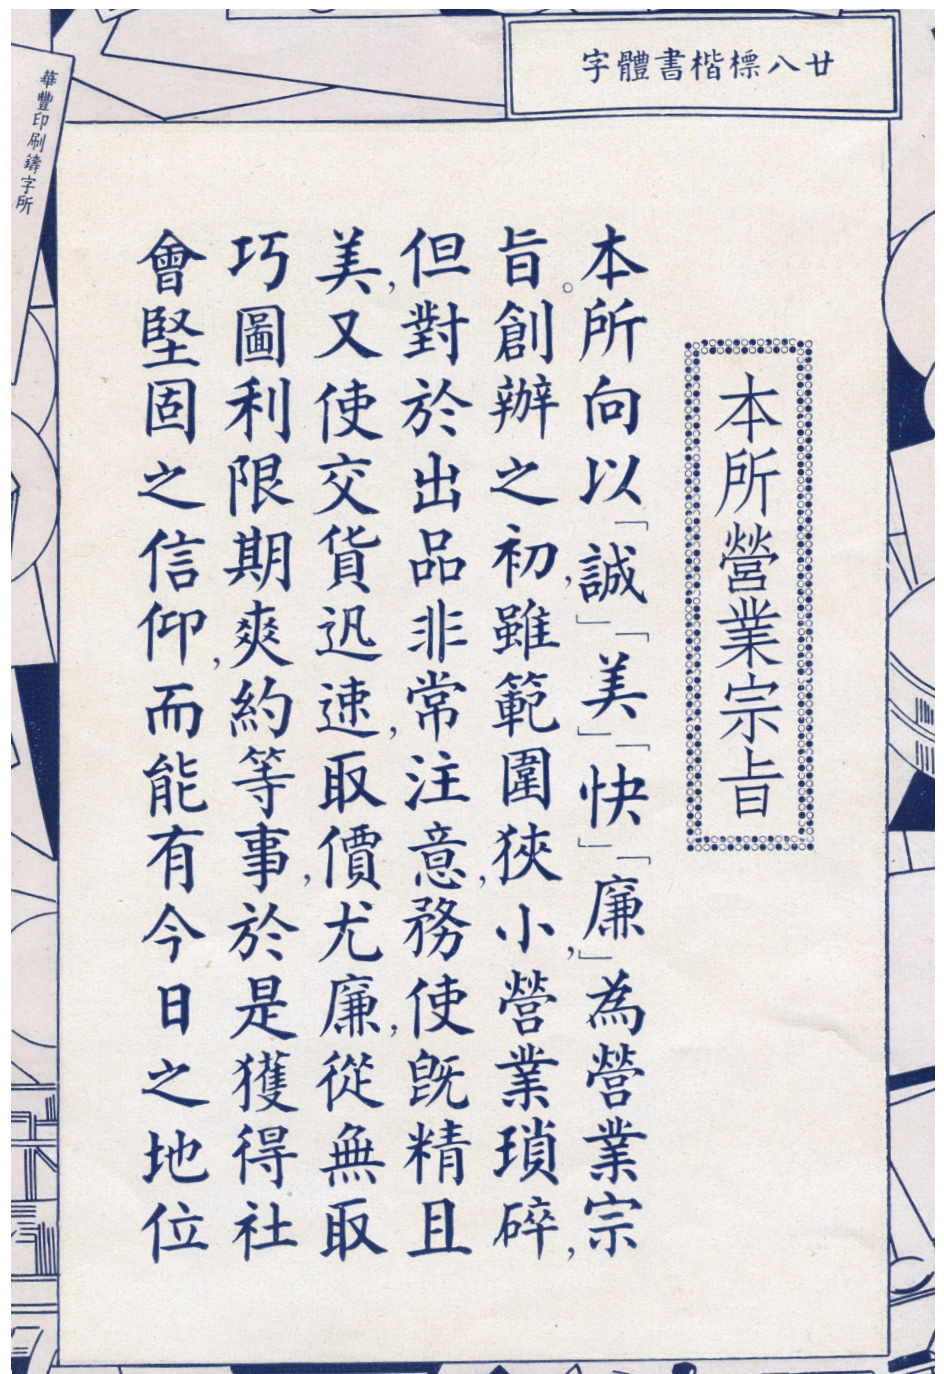 廿八標楷書體字
華豐印刷鑄字所
本所營業宗旨
本所向以「誠」「美」「快」「廉」為營業宗
旨。創辦之初,雖範圍狹小,營業瑣碎,
但對於出品非常注意,務使旣精且
美,又使交貨迅速,取價尤廉,從無取
巧圖利限期爽約等事,於是獲得社
會堅固之信仰,而能有今日之地位